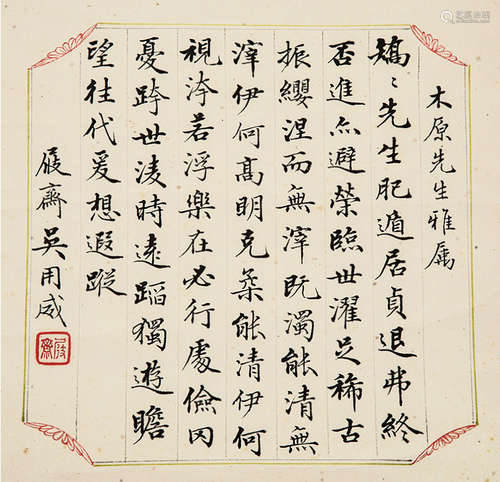 木原先生雅属
矯〻先生肥遁居貞退弗終
否進亦避榮臨世濯足稀古
振纓涅而無滓既濁能清無
滓伊何髙明克柔能清伊何
視洿若浮樂在必行處儉罔
憂跨世淩時遠蹈獨遊瞻
望往代爰想遐蹤
屐齋吳用威
屐齋